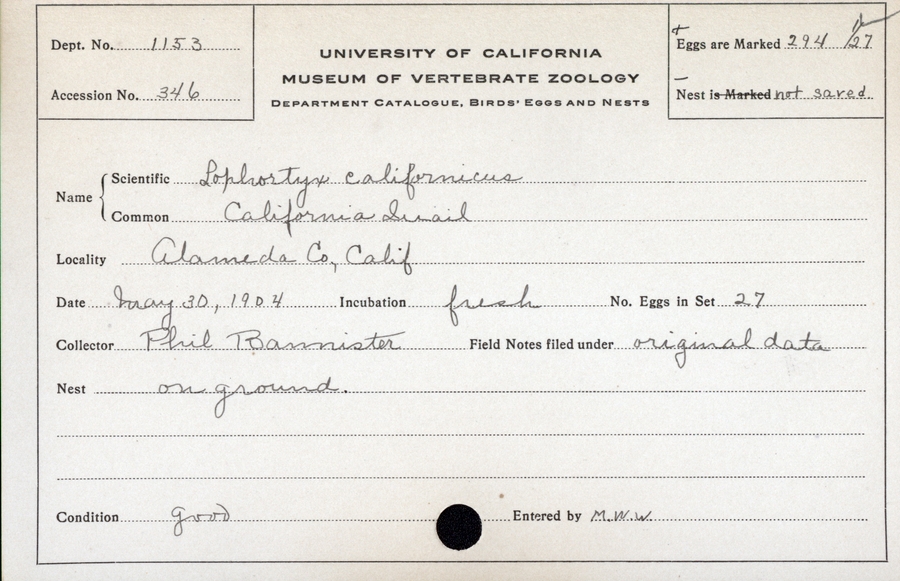 Dept. No. 1153
Accession No. 346
UNIVERSITY OF CALIFORNIA
MUSEUM OF VERTEBRATE ZOOLOGY
DEPARTMENT CATALOGUE, BIRDS' EGGS AND NESTS
Eggs are Marked 294 /27
Nest is Marked not saved
Name
Scientific Lophortyx californicus
Common California Quail
Locality Alameda Co, Calif
Date May 30, 1904 Incubation fresh No. Eggs in Set 27
Collector Phil Bannister Field Notes filed under original data
Nest on ground.
Condition good Entered by M.W.W.